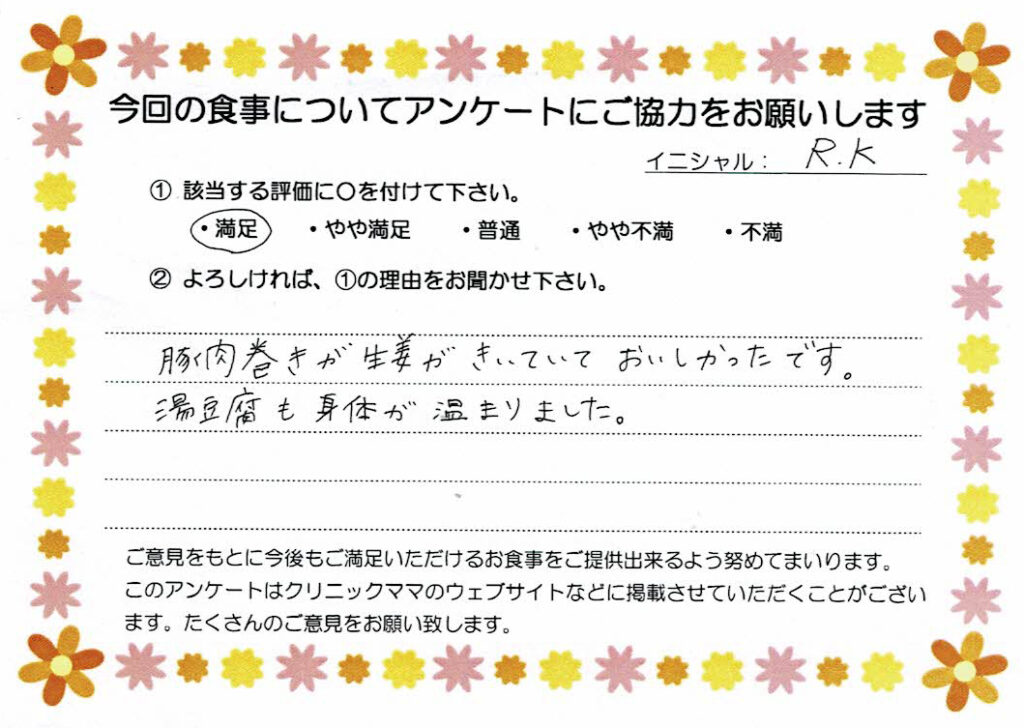 今回の食事についてアンケートにご協力をお願いします
イニシャル： R.K
① 該当する評価に〇を付けて下さい。
・満足 ・やや満足 ・普通 ・やや不満 ・不満
② よろしければ、①の理由をお聞かせ下さい。
豚肉巻きが生姜がきいていておいしかったです。
湯豆腐も身体が温まりました。
ご意見をもとに今後もご満足いただけるお食事をご提供出来るよう努めてまいります。
このアンケートはクリニックママのウェブサイトなどに掲載させていただくことがござい
ます。たくさんのご意見をお願い致します。